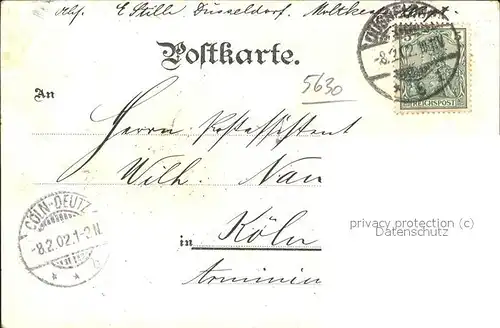 Abs. E Stille Düsseldorf. Moltkestr.
DÜSSELDORF
-8.2.02.
REICHSPOST
Postkarte.
5630
An
Herrn Postassistent
Wilh. Nau
in Köln
Arminia
CÖLN-DEUTZ
-8.2.02.1-2N
privacy protection
Datenschutz